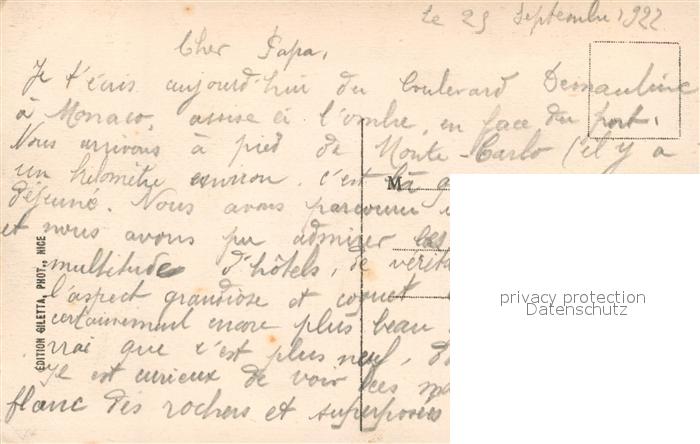 Le 25 Septembre 1922
Cher Papa,
Je t'écris aujourd'hui du boulevard
à Monaco, assise à l'ombre, en face du port.
Nous arrivons à pied de Monte-Carlo (il y a
un kilomètre environ. c'est là
déjeuné. Nous avons parcouru
et nous avons pu admirer les
multitude d'hôtels, de vérita
l'aspect grandiose et coquet
certainement encore plus beau
vrai que c'est plus neuf,
Il est curieux de voir les
flanc des rochers et superposées
M
ÉDITION GILETTA, PHOT., NICE
privacy protection
Datenschutz